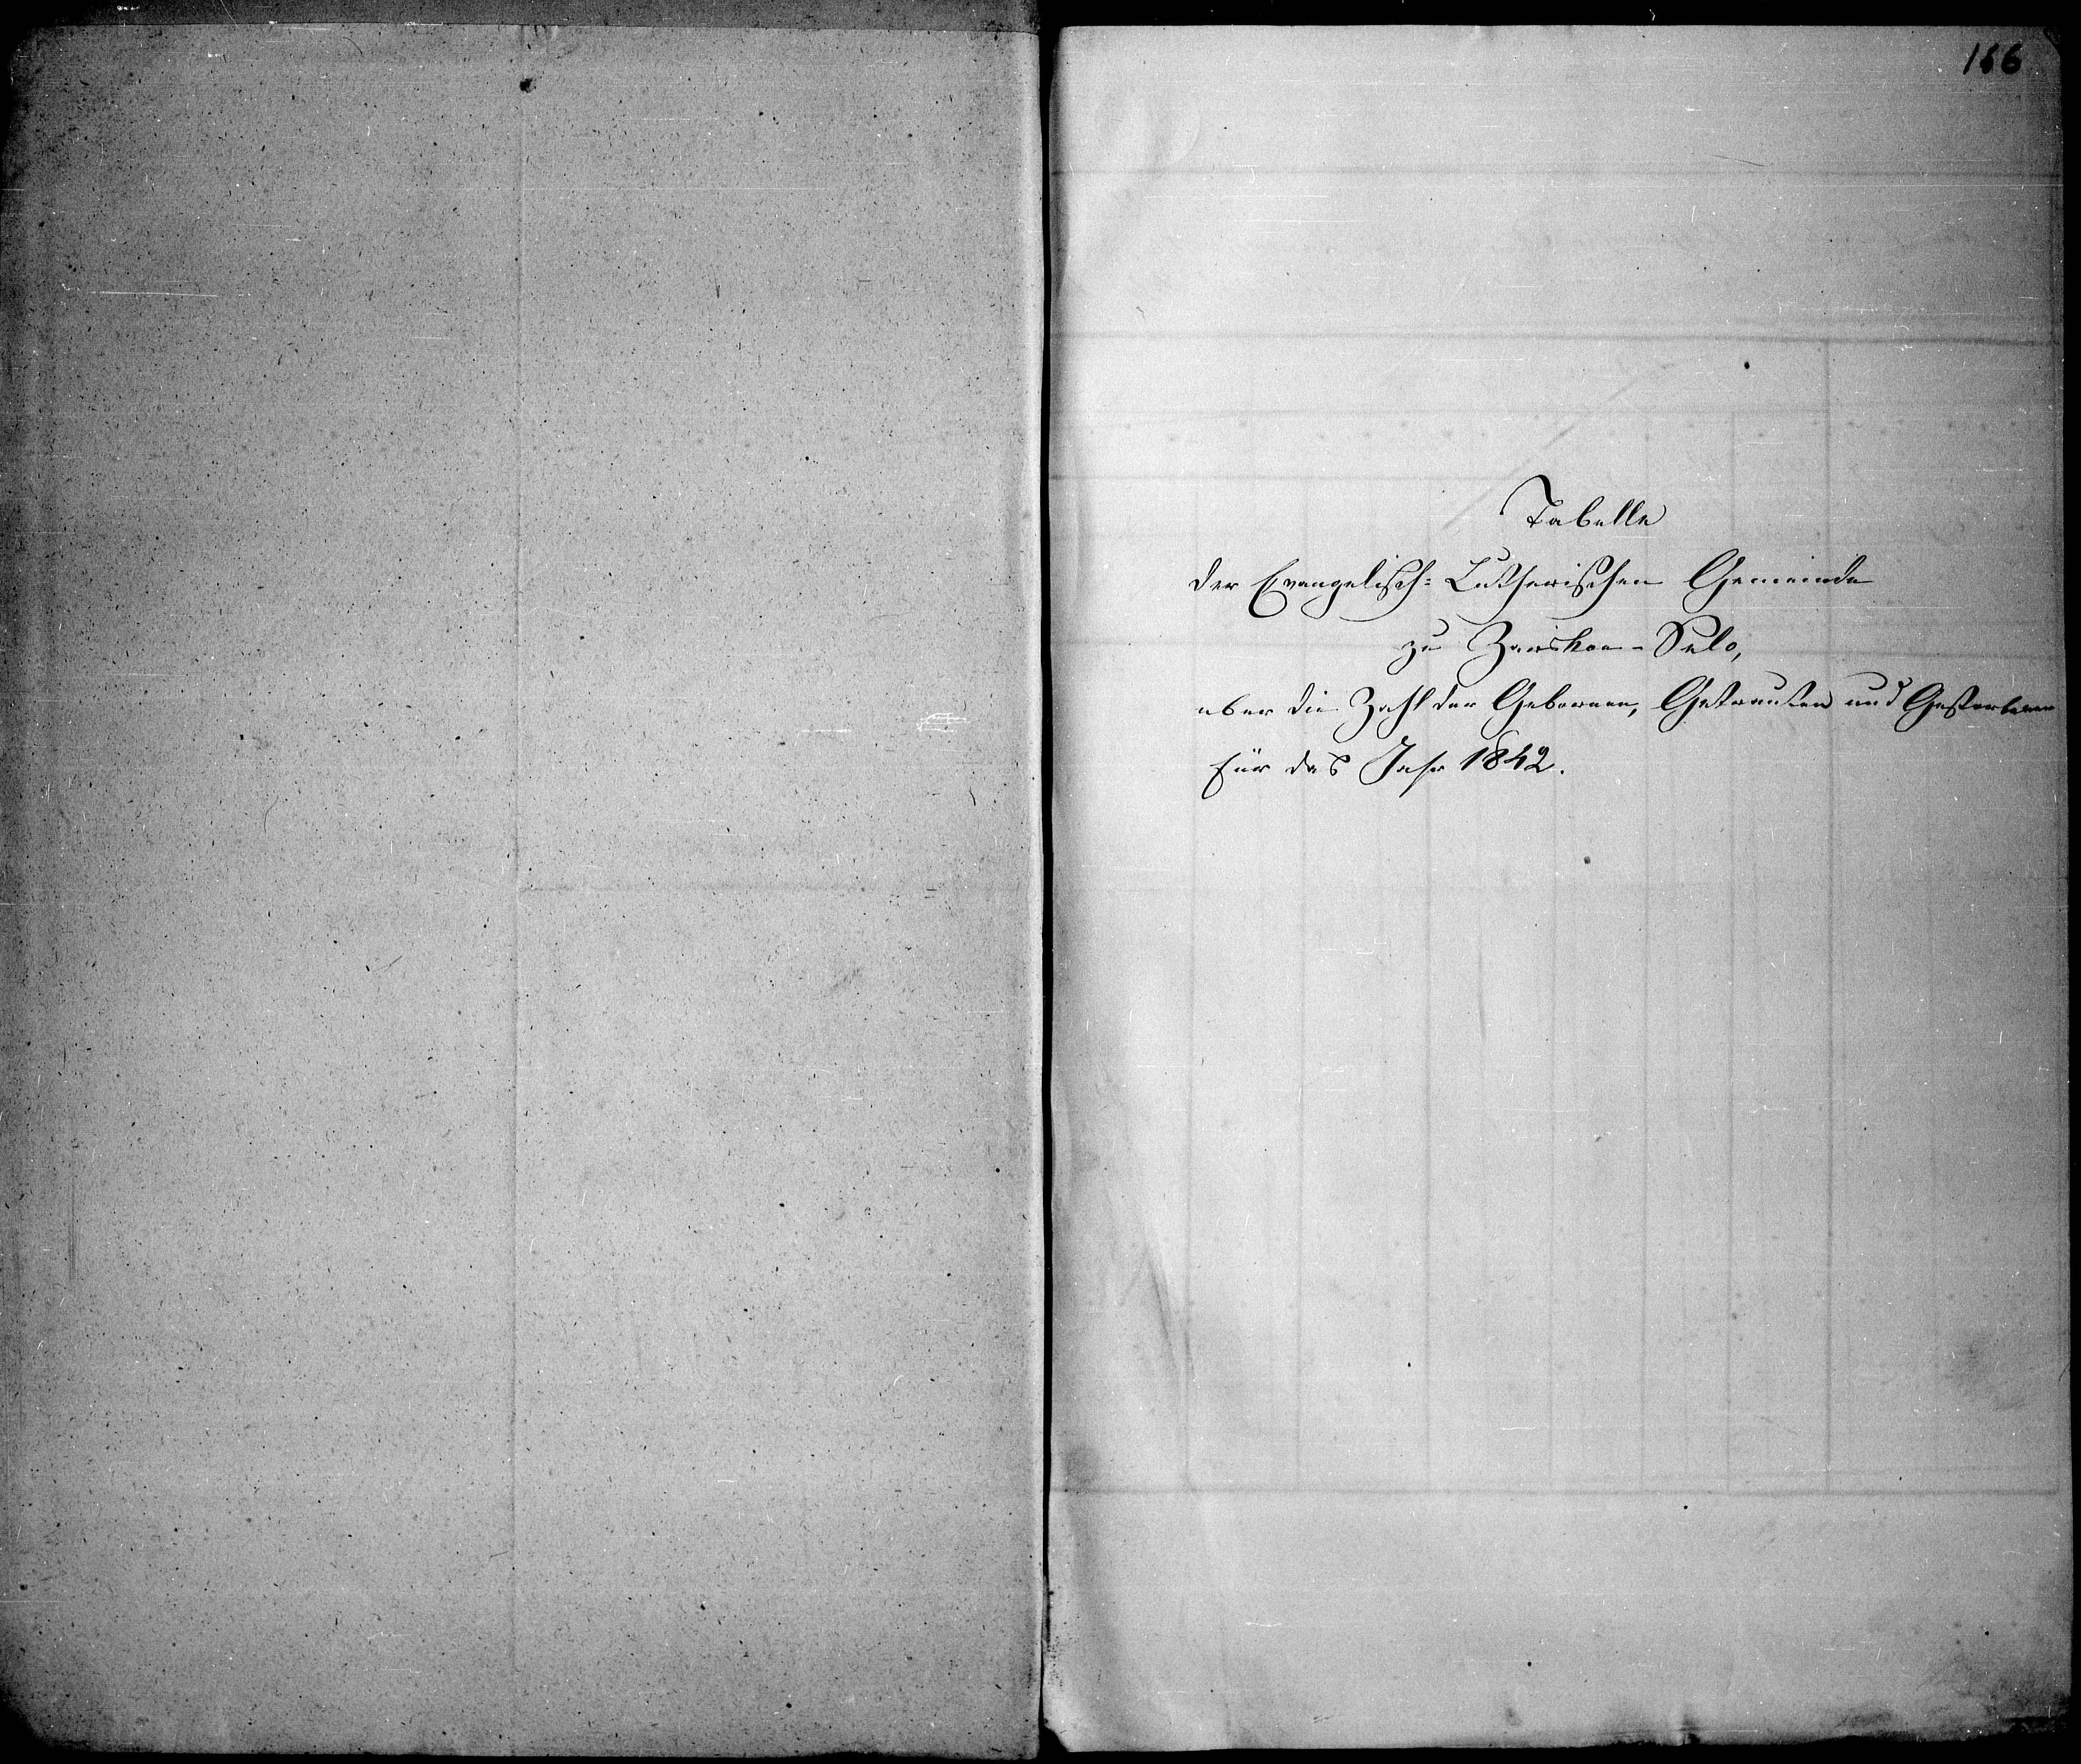 166
Tabelle
der Evangelisch=Lutherischen Gemeinde
zu Zarskoe-Selo,
uber die Zahl der Gebornen, Getrauten und Gestorbenen
für das Jahr 1842.